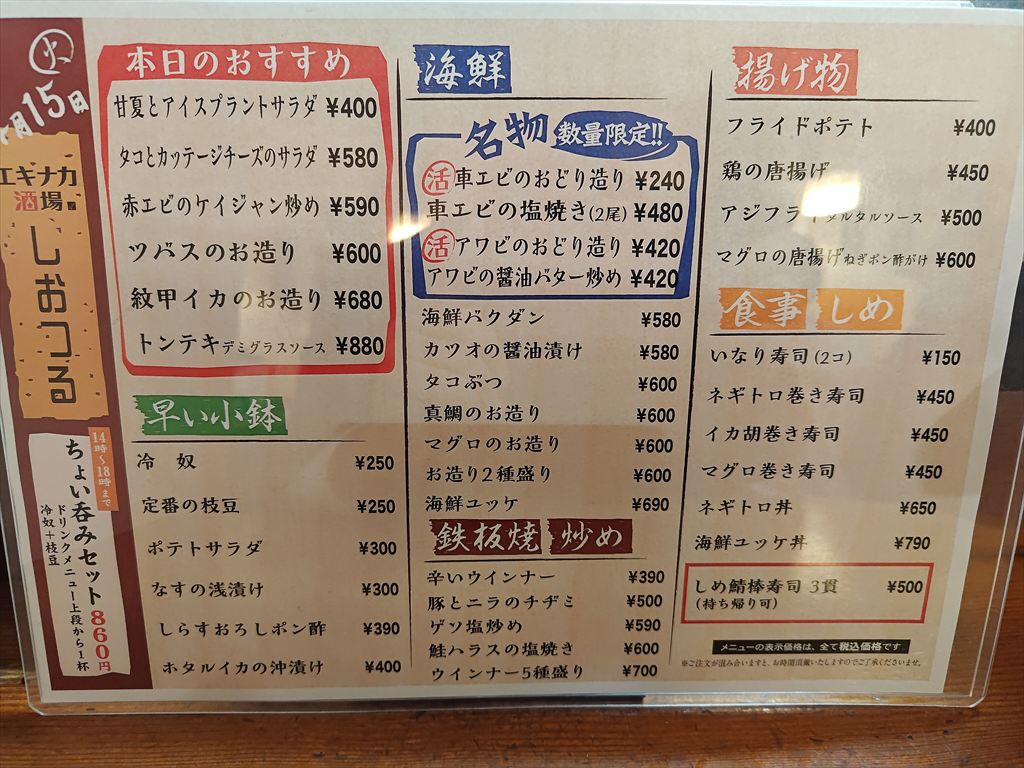 火
月15日
エキナカ
酒場
しおつる
14時～18時まで
ちょい呑みセット860円
ドリンクメニュー上段から1杯
冷奴＋枝豆
本日のおすすめ
甘夏とアイスプラントサラダ ¥400
タコとカッテージチーズのサラダ ¥580
赤エビのケイジャン炒め ¥590
ツバスのお造り ¥600
紋甲イカのお造り ¥680
トンテキデミグラスソース ¥880
早い小鉢
冷 奴 ¥250
定番の枝豆 ¥250
ポテトサラダ ¥300
なすの浅漬け ¥300
しらすおろしポン酢 ¥390
ホタルイカの沖漬け ¥400
海鮮
名物 数量限定!!
活車エビのおどり造り ¥240
車エビの塩焼き(2尾) ¥480
活アワビのおどり造り ¥420
アワビの醤油バター炒め ¥420
海鮮バクダン ¥580
カツオの醤油漬け ¥580
タコぶつ ¥600
真鯛のお造り ¥600
マグロのお造り ¥600
お造り2種盛り ¥600
海鮮ユッケ ¥690
鉄板焼 炒め
辛いウインナー ¥390
豚とニラのチヂミ ¥500
ゲソ塩炒め ¥590
鮭ハラスの塩焼き ¥600
ウインナー5種盛り ¥700
揚げ物
フライドポテト ¥400
鶏の唐揚げ ¥450
アジフライタルタルソース ¥500
マグロの唐揚げねぎポン酢がけ ¥600
食事 しめ
いなり寿司(2コ) ¥150
ネギトロ巻き寿司 ¥450
イカ胡巻き寿司 ¥450
マグロ巻き寿司 ¥450
ネギトロ丼 ¥650
海鮮ユッケ丼 ¥790
しめ鯖棒寿司 3貫 ¥500
(持ち帰り可)
メニューの表示価格は、全て税込価格です
※ご注文が混み合いますと、お時間頂戴いたしますのでご了承くださいませ。